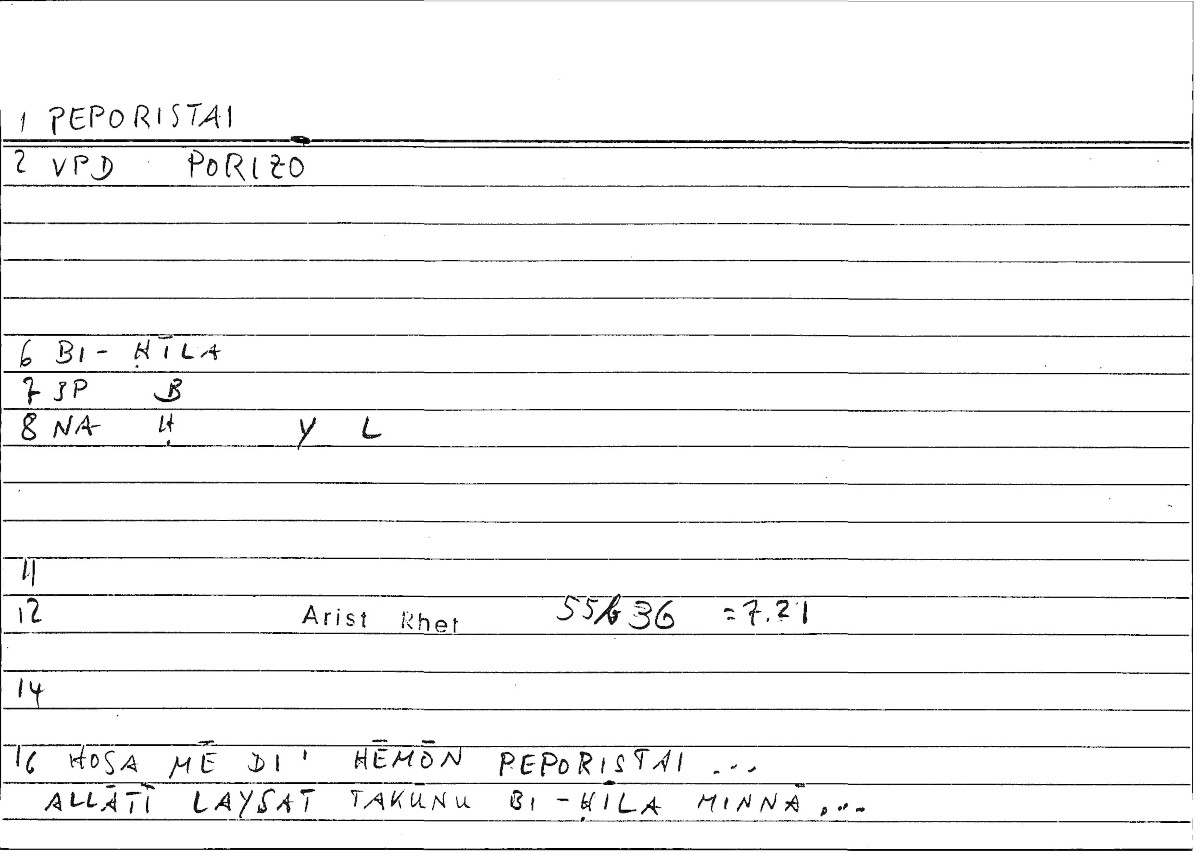 1 PEPORISTAI
2 VPD PORIZO
6 BI- ḤĪLA
7 3P B
8 NA Ḥ Y L
11
12 Arist Rhet 55b36 =7.21
14
16 HOSA MĒ DI' HĒMŌN PEPORISTAI ...
ALLĀTĪ LAYSAT TAKŪNU BI-ḤĪLA MINNĀ ...